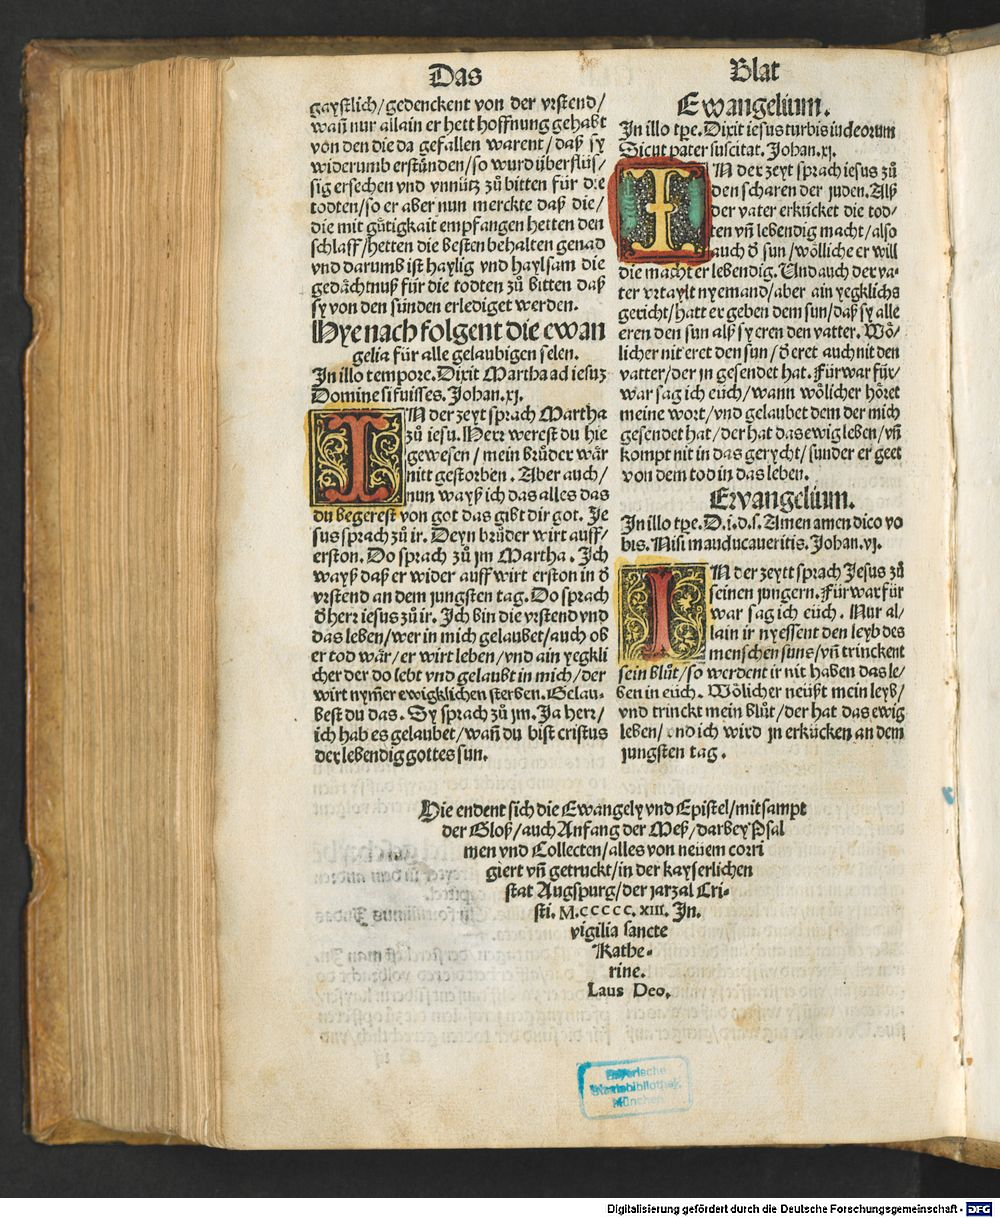 Das
gaystlich/gedenckent von der vrstend/
wañ nur allain er hett hoffnung gehabt
von den die da gefallen warent/daß sy
widerumb erstünden/so wurd überflüs/
sig ersechen vnd vnnütz zů bitten für die
todten/so er aber nun merckte daß die/
die mit gůtigkait empfangen hetten den
schlaff/hetten die besten behalten genad
vnd darumb ist haylig vnd haylsam die
gedächtnuß für die todten zů bitten daß
sy von den sünden erlediget werden.
Hye nach folgent die ewan
gelia für alle gelaubigen selen.
In illo tempore. Dixit Martha ad iesuʒ
Domine si fuisses. Johan.xj.
IN der zeyt sprach Martha
zů iesu. Herr werest du hie
gewesen/mein brůder wär
nitt gestorben. Aber auch/
nun wayß ich das alles das
du begerest von got das gibt dir got. Je
sus sprach zů ir. Deyn brůder wirt auff/
erston. Do sprach zů jm Martha. Ich
wayß daß er wider auff wirt erston in d̕
vrstend an dem jungsten tag. Do sprach
d̕ herr iesus zů ir. Ich bin die vrstend vnd
das leben/wer in mich gelaubet/auch ob
er tod wär/er wirt leben/vnd ain yegkli
cher der do lebt vnd gelaubt in mich/der
wirt nym̃er ewigklichen sterben. Gelau-
best du das. Sy sprach zů jm. Ja herr/
ich hab es gelaubet/wañ du bist cristus
der lebendig gottes sun.
Blat
Ewangelium.
In illo tp̃e. Dixit iesus turbis iudeorum
Sicut pater suscitat. Johan.xj.
IN der zeyt sprach iesus zů
den scharen der juden. Alß
der vater erkücket die tod/
ten vñ lebendig macht/also
auch d̕ sun/wölliche er will
die macht er lebendig. Und auch der va-
ter vrtaylt nyemand/aber ain yegklichs
gericht/hatt er geben dem sun/daß sy alle
eren den sun alß sy eren den vatter. Wö/
licher nit eret den sun/d̕ eret auch nit den
vatter/der jn gesendet hat. Fürwar für/
war sag ich eüch/wann wölicher höret
meine wort/vnd gelaubet dem der mich
gesendet hat/der hat das ewig leben/vñ
kompt nit in das gerycht/sunder er geet
von dem tod in das leben.
Ewangelium.
In illo tp̃e. D.i.d.s. Amen amen dico vo
bis. Nisi manducaueritis. Johan.vj.
IN der zeytt sprach Jesus zů
seinen jungern. Fürwar für
war sag ich eüch. Nur al/
lain ir nyessent den leyb des
menschen suns/vñ trinckent
sein blůt/so werdent ir nit haben das le/
ben in eüch. Wölicher neüßt mein leyb/
vnd trinckt mein blůt/der hat das ewig
leben/vnd ich wird jn erkücken an dem
jungsten tag.
Hie endent sich die Ewangely vnd Epistel/mitsampt
der Gloß/auch Anfang der Meß/darbey Psal
men vnd Collecten/alles von neüem corri
giert vñ getruckt/in der kayserlichen
stat Augspurg/der jarzal Cri-
sti. M.ccccc.xiii. In.
vigilia sancte
Kathe-
rine.
Laus Deo.
Bayerische
Staatsbibliothek
München
Digitalisierung gefördert durch die Deutsche Forschungsgemeinschaft - DFG